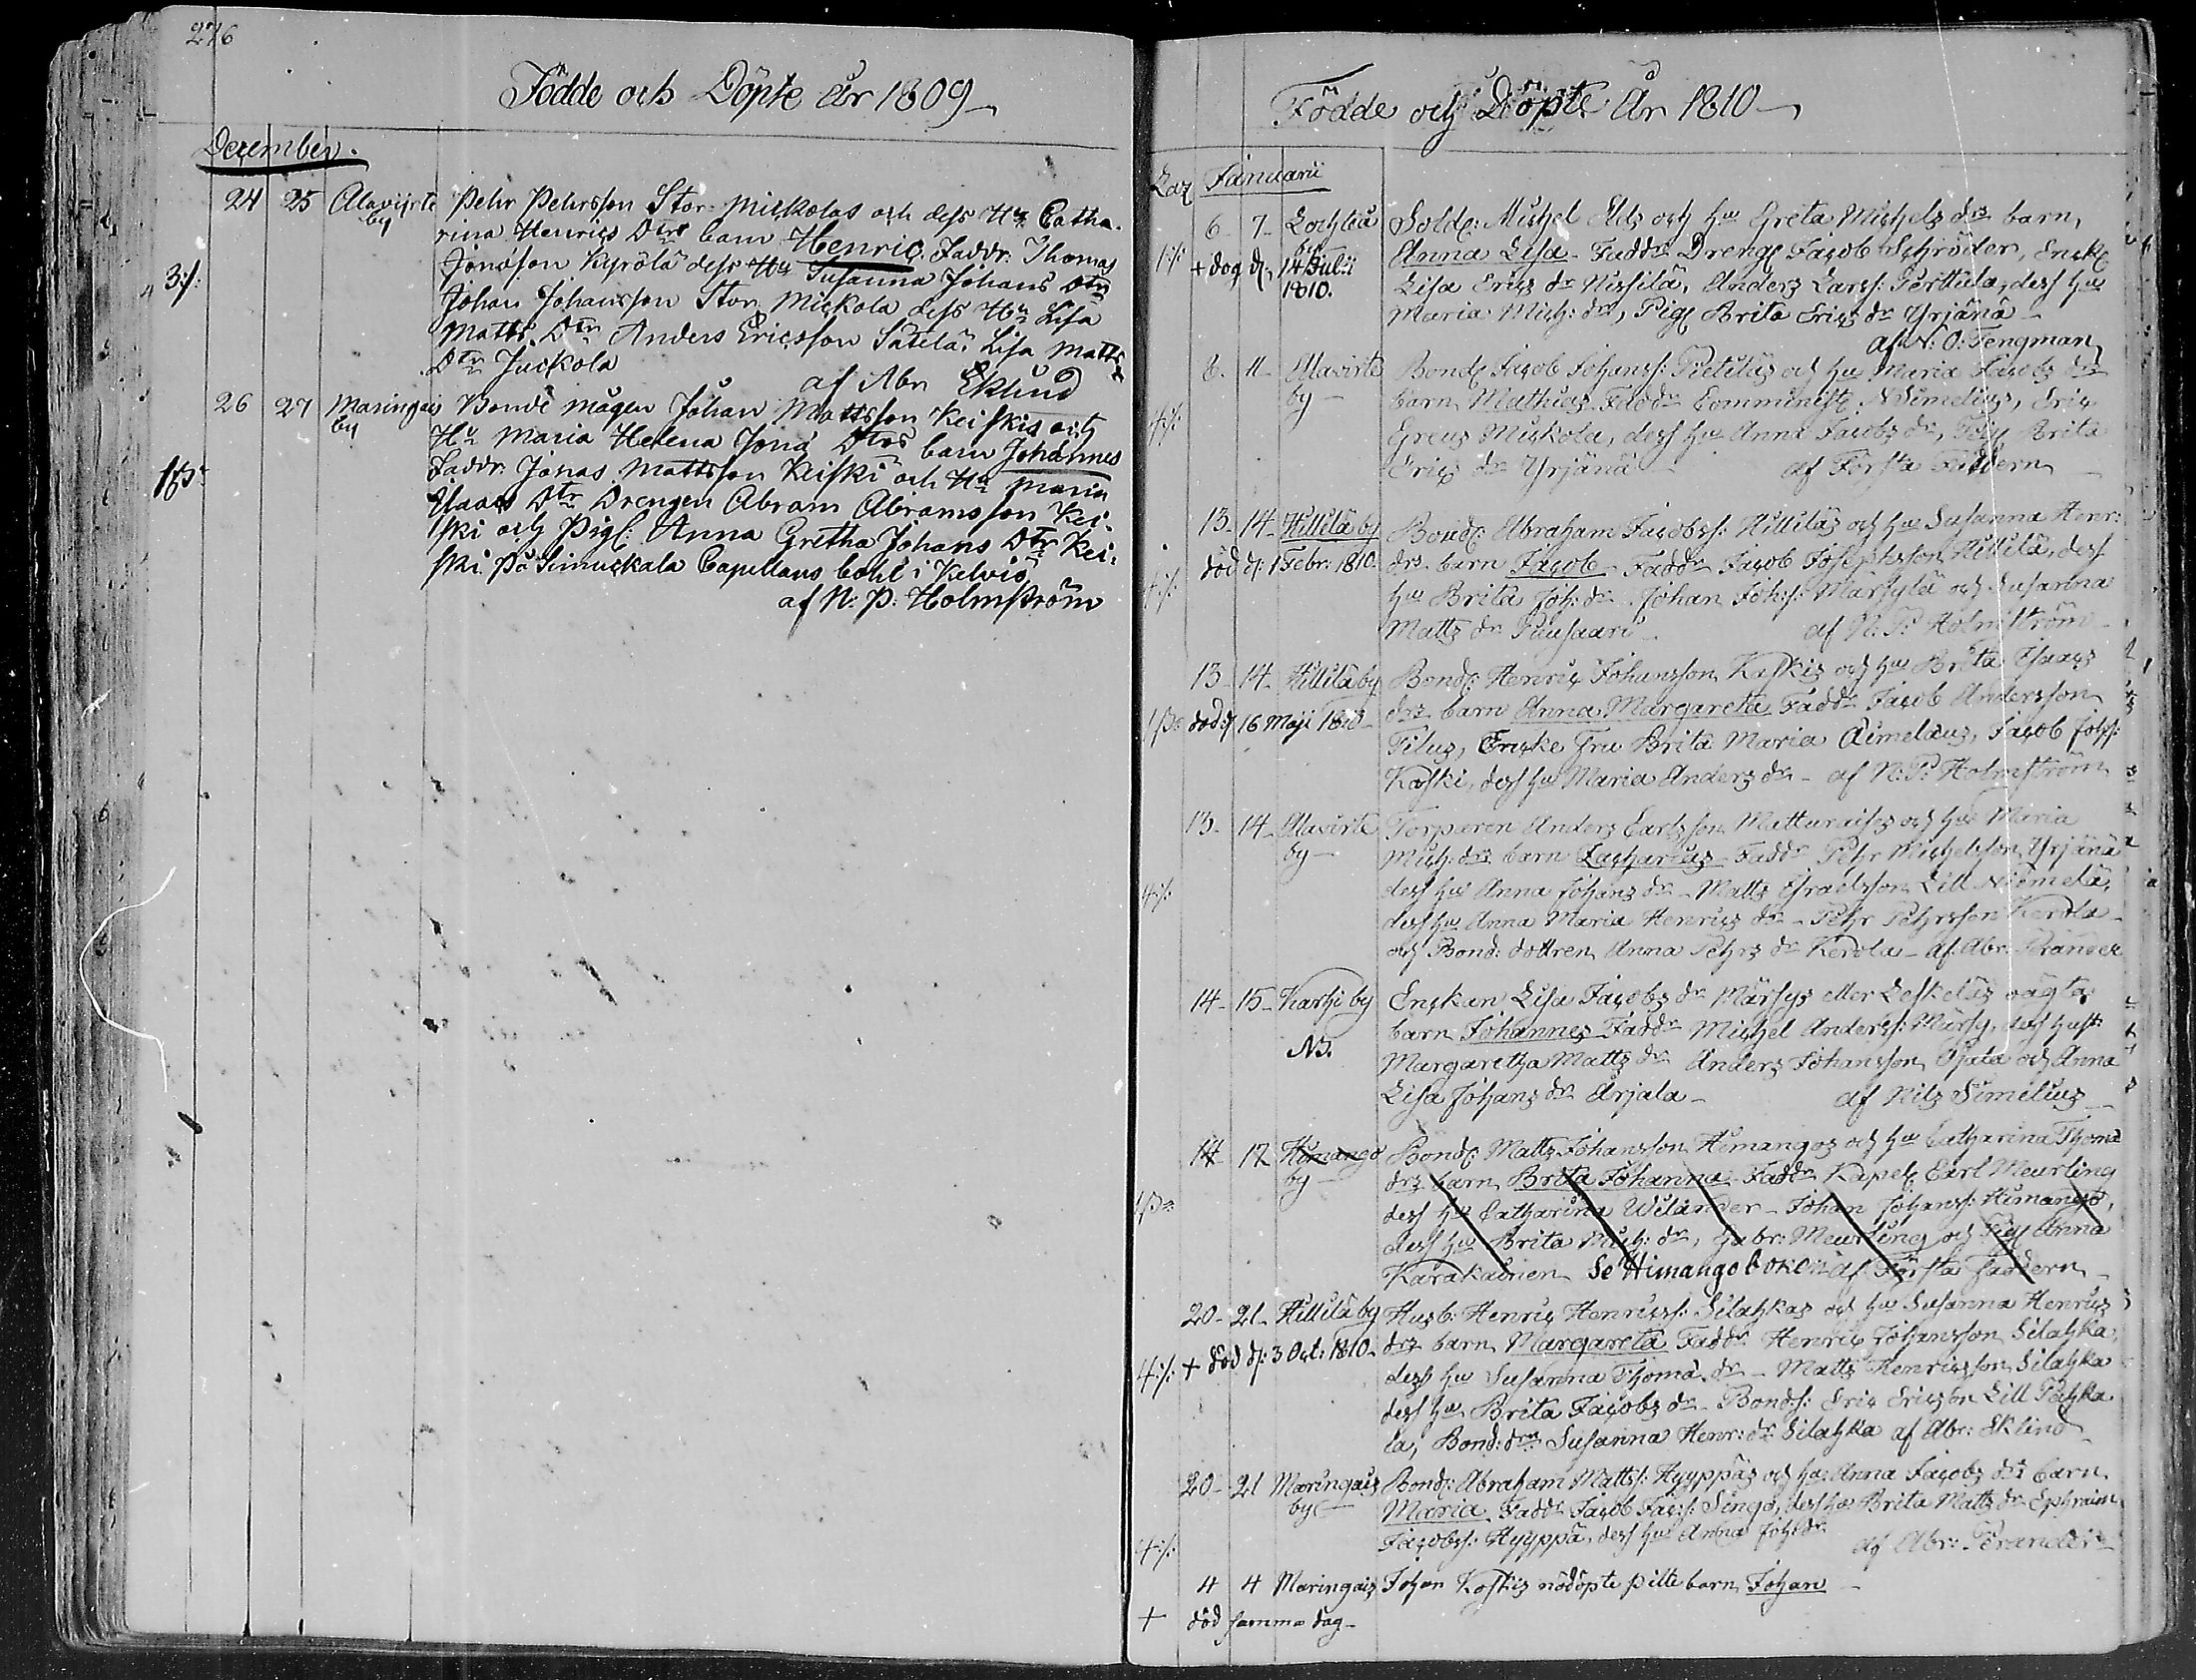 276
Födde och Döpte År 1809
December.
24 25 Alavijrte by
Pehr Pehrsson Stor Mickolas och dess Hu Catha-
rina Henrics Dtrs barn Henric. Faddr. Thomas
Jonasson Kyrölä dess Hu Susanna Johans Dtr
3:/:
Johan Johansson Stor Mickola dess Hu Lisa
Matts Dtr Anders Ericsson Lisa Matts
Dtr Juckola
af Abr. Eklund
26 27 Maringais by
Bonde mågen Johan Mattsson Keiskis och
Hu Maria Helena Jona Dtrs barn Johannes
Faddr: Jonas Mattsson Keiski och Hu Maria
Isaacs Dtr Drengen Abram Abramsson Kei-
ski och Pig: Anna Gretha Johans Dtr Kei-
ski. På Simuckala Capellans bohl i Kelviå
af N: P: Holmström
Födde och Döpte År 1810
Januarii
6 7 Lochteå by
Sold: Michel Elds och hu Greta Michels drs barn,
1:/: + dog d. 14 Julii 1810.
Anna Lisa. Faddr Dreng Jacob Schröder, Enck
Lisa Erics dr Nissilä, Anders Larss: Perttula, dess hu
Maria Mich: dr, Pig Brita Erics dr Yrjänä
af N: O: Tengman
8. 11 Alavirte by
Bond Jacob Johanss: Pietiläs och hu Maria Jacobs drs
4:/:
barn Mathias. Faddr Comminist. N Simelius, Eric
Greus Mickola, dess hu Anna Jacobs dr, Pig Brita
Erics dr Yrjänä af Första Faddern
13 14 Hillilä by
Bond: Abraham Jacobss: Hilliläs och hu Susanna Henr:
död d: 1 Febr: 1810.
drs barn Jacob. Faddr Jacob Josephsson Hillilä, dess
4:/:
hu Brita Joh: dr. Johan Joh:s: Märsylä och Susanna
Matts dr Puusaari
af N: P: Holmström
13 14 Hillilä by
Bond: Henric Johansson Kaskis och hu Brita Isaacs
död d 16 Maji 1810
drs barn Anna Margareta Faddr Jacob Andersson
Filus, Encke Fru Brita Maria Aimelæus, Jacob Johss:
Kaski, dess hu Maria Anders dr. af N: P: Holmström
13 14 Alavirte by
Torparen Anders Carlsson Matturaises och hu Maria
Mich: drs barn Zacharias. Faddr Pehr Michelsson Yrjänä
4:/:
dess hu Anna Johans dr. Matts Israelsson Lill Niemelä,
dess hu Anna Maria Henrics dr. Pehr Pehrsson Kerola
och Bond: dottren Anna Pehrs dr Kerola af Abr. Perander
14 15 Karhi by
Enckan Lisa Jacobs dr Märsys eller Leskeläs oägta
barn Johannes. Faddr Michel Anderss: Märsy, dess hust:
NB.
Margaretha Matts dr Anders Johansson Ojala och Anna
Lisa Johans dr Ärjala
af Nils Simelius
14 17 Himango by
Bond: Matts Johansson Himangos och hu Catharina Thoma
drs barn Brita Johanna Faddr Kapel Carl Meurling
dess hu Catharina Wilander. Johan Johanss: Himango,
dess hu Brita Mich: dr, Gabr: Meurling och Pig Anna
Karakainen Se Himango boken af Första faddern
20 21 Hillilä by
Husb: Henric Henricss: Silahkas och hu Susanna Henrics
4:/: + död d: 3 Oct: 1810.
drs barn Margareta Faddr Henric Johansson Silahka,
dess hu Susanna Thoma dr. Matts Henricsson Silahka
dess hu Brita Jacobs dr. Bond:s: Eric Ericsson Lill Pahka
la, Bond: drn Susanna Henr: dr Silahka af Abr: Eklund
20 21 Maringais by
Bond: Abraham Matts: Hyyppäs och hu: Anna Jacobs drs barn
Maria Faddr Jacob Jac:s: Singo, dess hu Brita Matts dr Ephraim
4:/:
Jacobss: Hyyppä, dess hu Anna Joh: dr
af Abr: Perander
4 4 Maringais
Johan Koskis nöddöpte pilte barn Johan
+ död samma dag